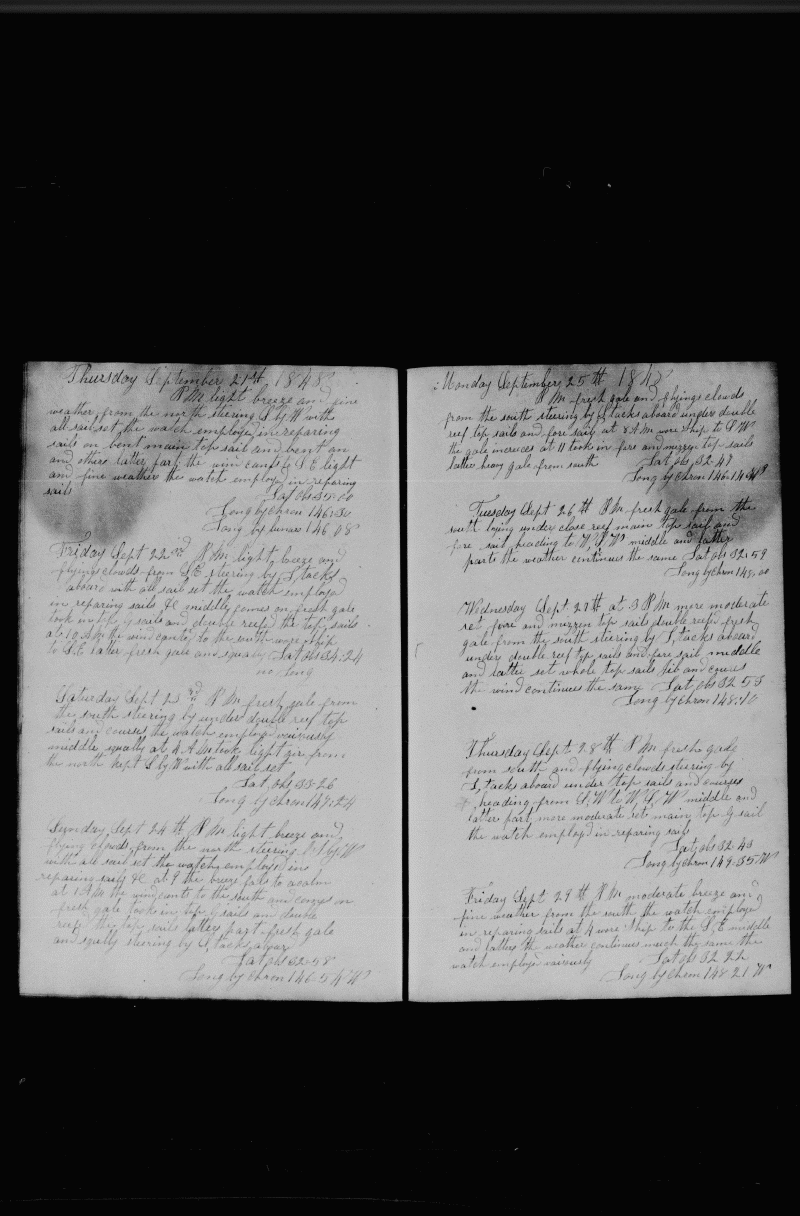 Thursday September 21st 1848
P M light breeze and fine
weather from the north steering S by W with
all sail set the watch employd in reparing
sails on bent main top sail and bent an
and others latter part the wind cants to S. E. light
and fine weather the watch employ in reparing
sails
Lat obs 35=00
Long by chron 146=30
Long by lunar 146 08
Friday Sept 22nd P M light breeze and
flying clouds from S. E steering by S, tacks
aboard with all sail set the watch employd
in reparing sails &c middle comes on fresh gale
took in top g sails and double reefd the top sails
at 10 A M the wind cants to the south wore ship
to S. E latter fresh gale and squaly Lat obs 34=24
no Long
Saturday Sept 23rd P M fresh gale from
the south steering by under double reef top
sails and courses the watch employd variously
middle squally at 4 A M took light air from
the north kept S by W with all sail set
Lat, obs 33=26
Long by chron 147=24
Sunday Sept 24th P M light breeze and
flying clouds from the north steering S by W
with all sail set the watch employed in
reparing sails &c at 9 the breeze fals to a calm
at 1 A M the wind cants to the south and comes on
fresh gale took in top g sails and double
reef the top sails latter part fresh gale
and squally steering by S, tacks aboard
Lat obs 32=58
Long by chron 146=54 W
Monday September 25th 1848
P M fresh gale and flying clouds
from the south steering by S, tacks aboard under double
reef top sails and fore sail at 8 A M wore ship to S. W
the gale increces at 11 took in fore and mizzen top sails
latter heavy gale from south Lat obs 32=47
Long by chron 146=14 W
Tuesday Sept 26th P M fresh gale from the
south laying under close reef main top sail and
fore sail heading to W. S W middle and latter
parts the weather continues the same Lat obs 32=59
Long by chron 148=00
Wednesday Sept. 27th at 3 P M more moderate
set fore and mizzen top sails double reefd fresh
gale from the south steering by S, tacks aboard
under double reef top sails and fore sail middle
and latter set whole top sails jib and courses
the wind continues the same Lat obs 32 53
Long by chron 148=10
Thursday Sept. 28th P M fresh gale
from south and flying clouds steering by
S, tacks aboard under top sails and courses
heading from S. W to W, S, W middle and
latter part more moderate set main top g sail
the watch employd in reparing sails
Lat obs 32 43
Long by chron 149=35 W
Friday Sept 29th P M moderate breeze and
fine weather from the south the watch employd
in reparing sails at 4 wore ship to the S. E middle
and latter the weather continues much the same the
watch employd variously Lat obs 32 22
Long by chron 148 21 W